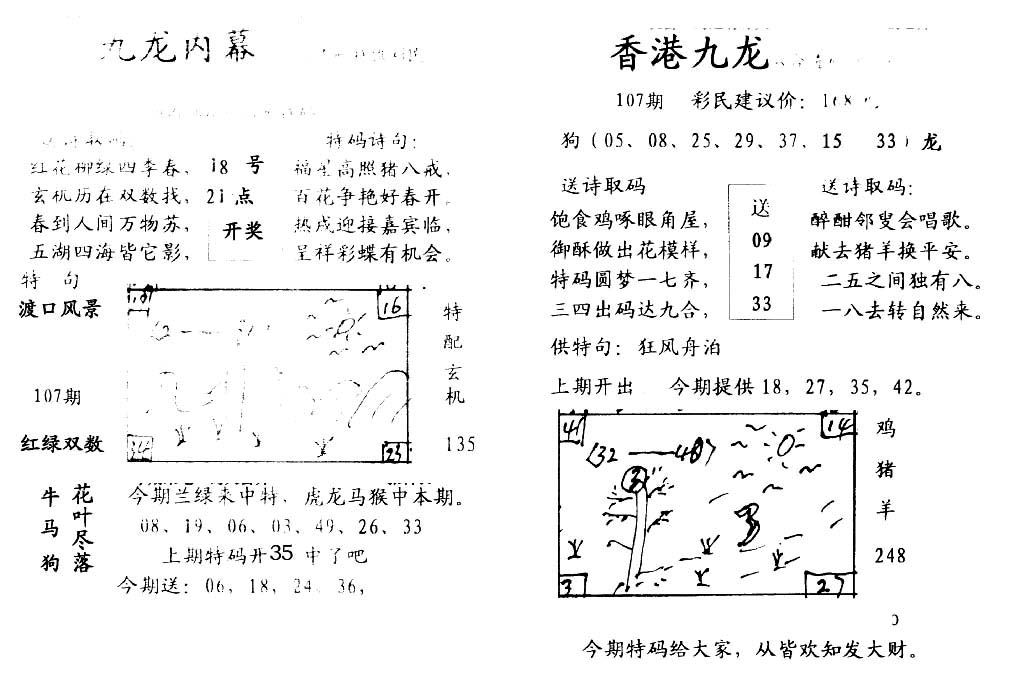 九龙内幕
特码诗句:
红花柳绿四季春、 18 号 福星高照猪八戒,
玄机历在双数找, 21点 百花争艳好春开。
春到人间万物苏、 开奖 热戌迎接嘉宾临,
五湖四海皆它影, 呈祥彩蝶有机会。
特 句
渡口风景
107期
红绿双数
16
23
特
配
玄
机
135
牛
马
狗
花
叶
尽
落
今期兰绿来中特、虎龙马猴中本期。
08、19、06、03、49、26、33
上期特码开35 中了吧
今期送: 06, 18, 24, 36,
香港九龙
107期 彩民建议价:
狗(05、08、25、29、37、15 33)龙
送诗取码
饱食鸡啄眼角屋,
御酥做出花模样,
特码圆梦一七齐,
三四出码达九合,
送
09
17
33
送诗取码:
醉酣邻叟会唱歌。
献去猪羊换平安。
二五之间独有八。
一八去转自然来。
供特句: 狂风舟泊
上期开出 今期提供18, 27, 35, 42。
41
14
3
27
鸡
猪
羊
248
今期特码给大家, 从皆欢知发大财。